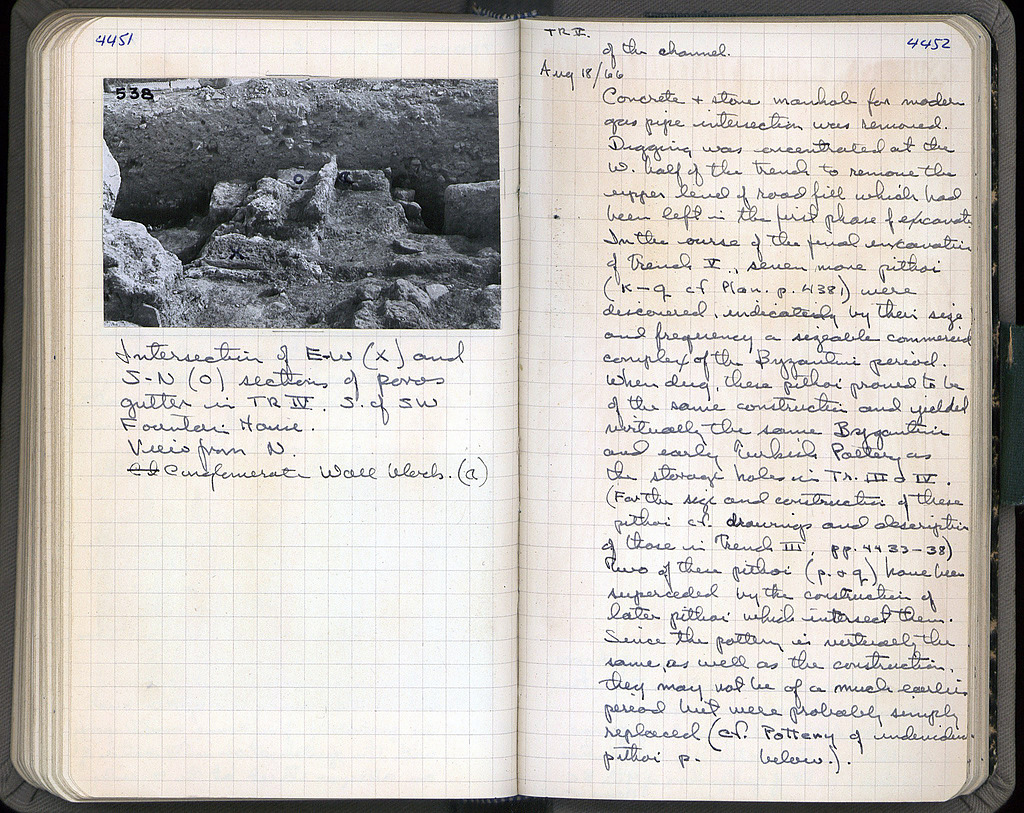 4451
538
Intersection of E-W (X) and
S-N (O) sections of poros
gutter in TR IV. S. of SW
Fountain House.
View from N.
Conglomerate Wall block. (a)
TR V.
4452
of the channel.
Aug 18/66
Concrete + stone manhole for modern
gas pipe intersection was removed.
Digging was concentrated at the
W. half of the trench to remove the
upper level of road fill which had
been left in the first phase of excavatn
In the course of the final excavation
of Trench V, seven more pithoi
(K-q cf Plan. p. 4381) were
discovered, indicating by their size
and frequency a sizeable commercial
complex of the Byzantine period.
When dug, these pithoi proved to be
of the same construction and yielded
virtually the same Byzantine
and early Turkish Pottery as
the storage holes in Tr. III & IV.
(For the size and construction of these
pithoi cf. drawings and description
of those in Trench III, pp. 4433-38)
Two of these pithoi (p. & q) have been
superceded by the construction of
later pithoi which intersect them.
Since the pottery is virtually the
same, as well as the construction,
they may not be of a much earlier
period but were probably simply
replaced (cf. Pottery of
pithoi p. below.).